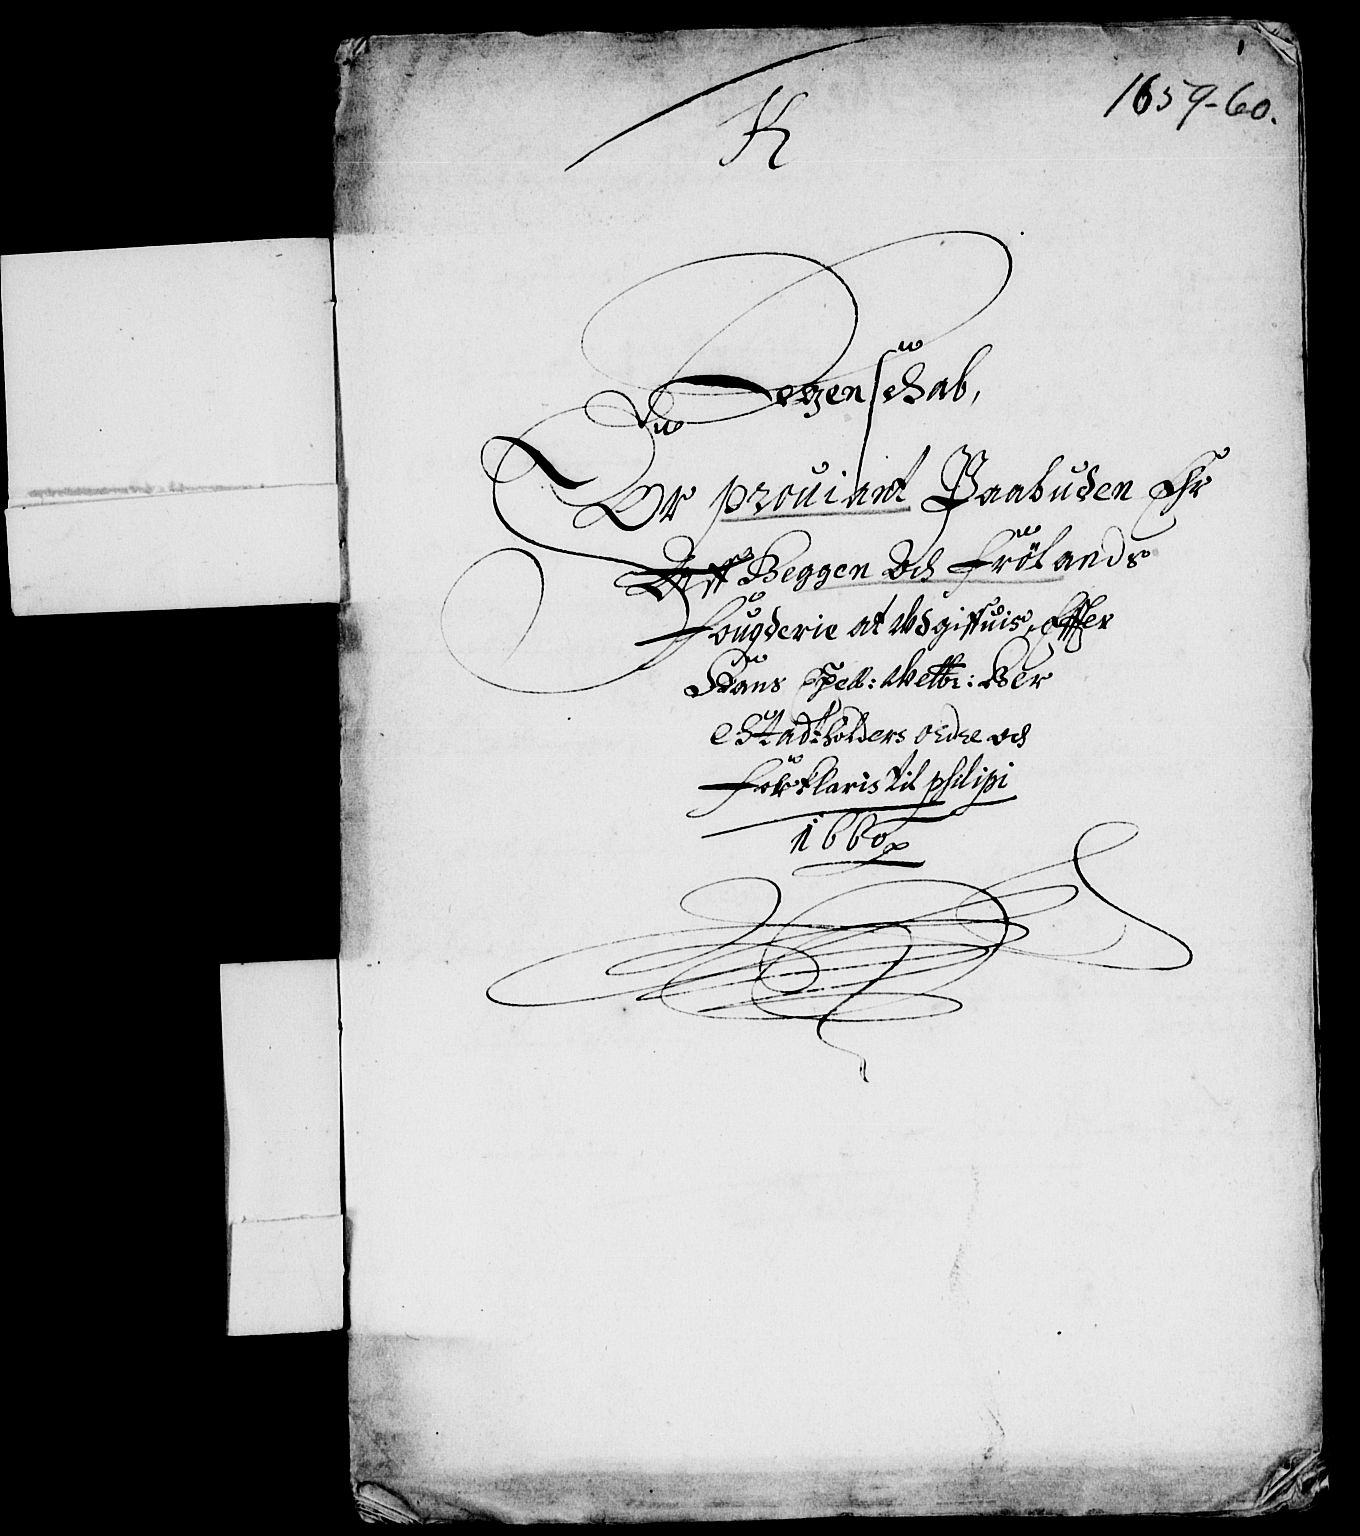 1659-60.
K
Regenschab,
For prouiant Paabuden Er
Aff Beggen Och Frölands
Fougderie at Udgiffuis, Effter
Hans Velb: Her
Stadtholders ordre och
Forklaris til philipi
1660